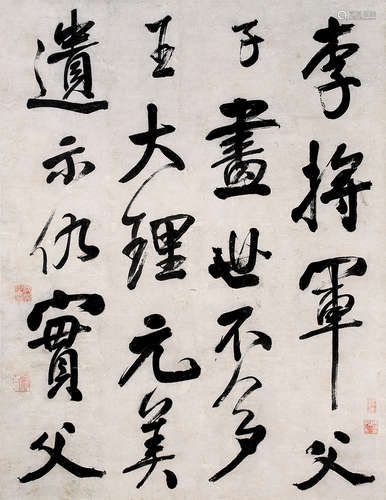 李將軍父
子畫世不多
王大理元美
遺示仇實父